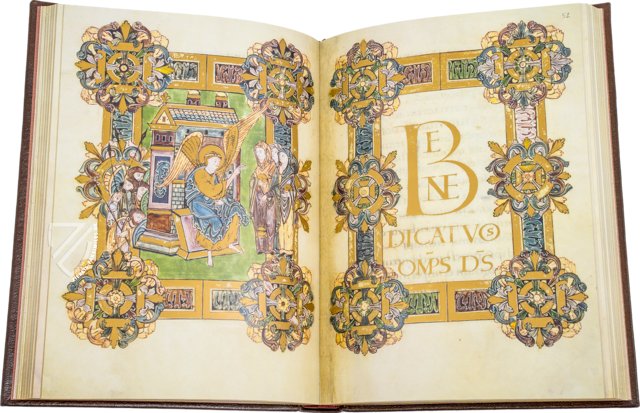 52
BE
NE
DICAT VOS
OMPS D̅S